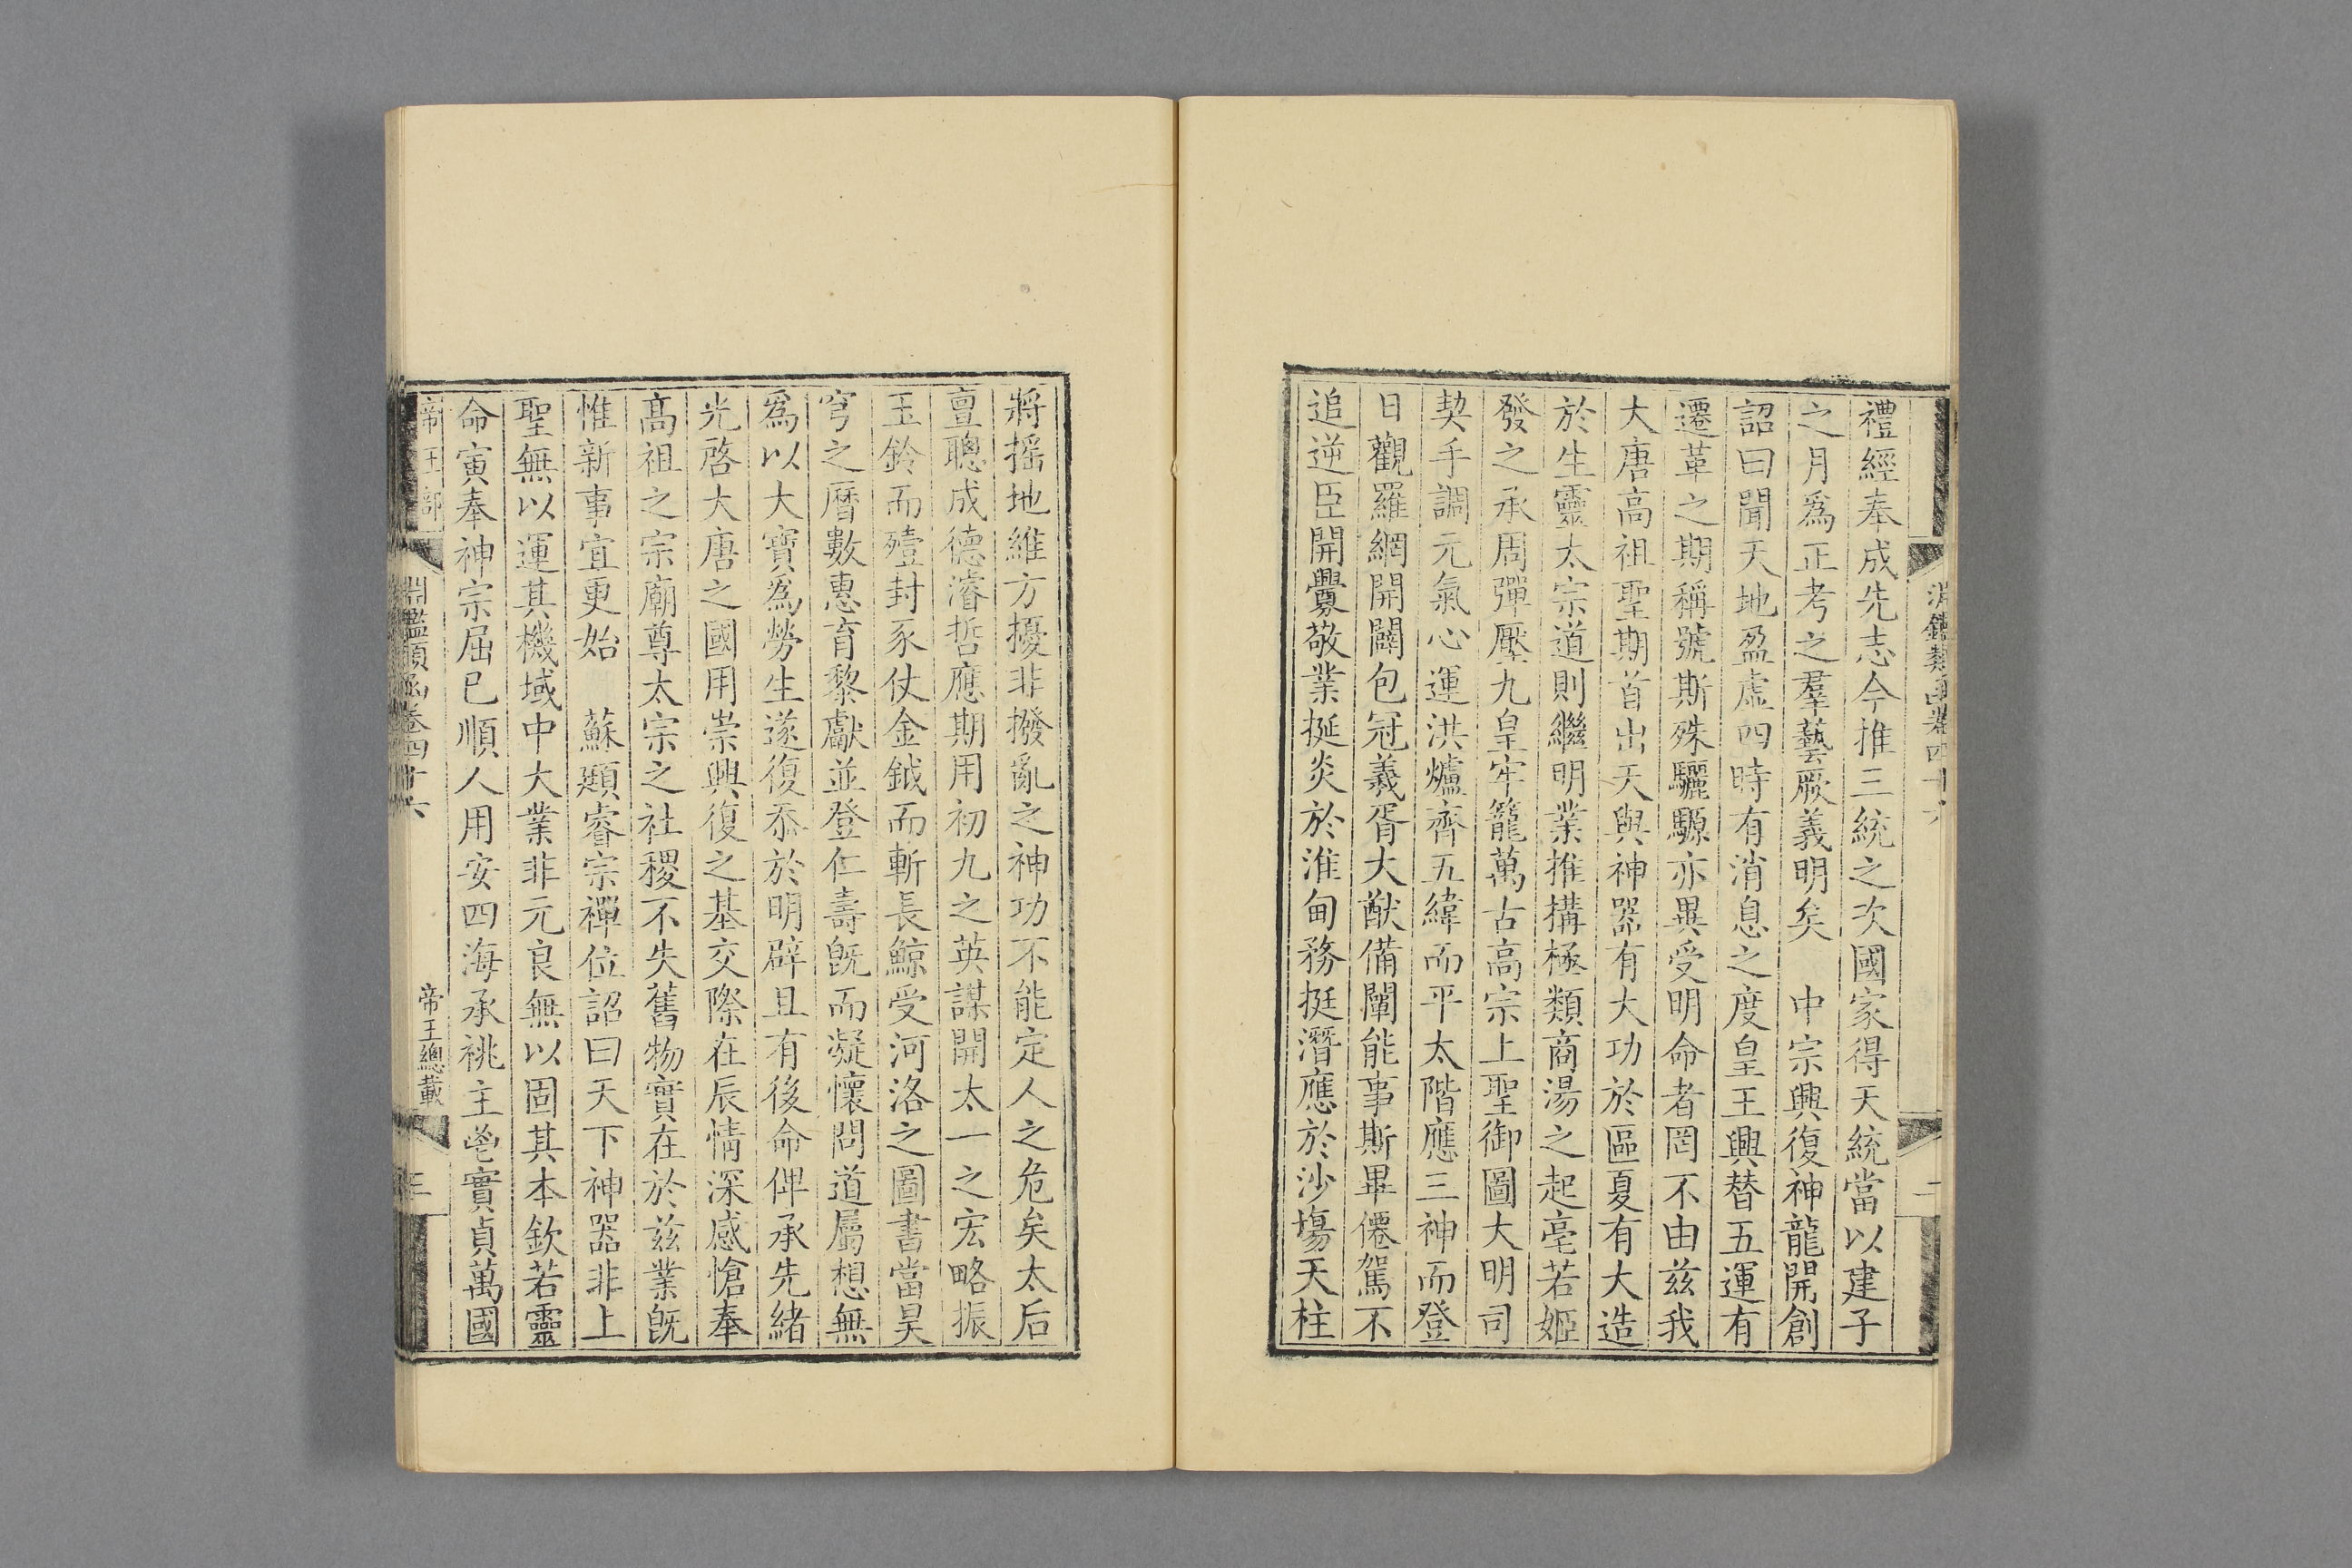 禮經奉成先志今推三統之次國家得天統當以建子
之月爲正考之羣藝厥義明矣　中宗興復神龍開創
詔曰聞天地盈虛四時有消息之度皇王興替五運有
遷革之期稱號斯殊驪騵亦異受明命者罔不由兹我
大唐高祖聖期首出天與神器有大功於區夏有大造
於生靈太宗道則繼明業推搆極類商湯之起亳若姬
發之承周彈壓九皇牢籠萬古高宗上聖御圖大明司
契手調元氣心運洪爐齊五緯而平太階應三神而登
日觀羅網開闢包冠羲胥大猷備闡能事斯畢僊駕不
追逆臣開釁敬業挻炎於淮甸務挺潛應於沙塲天柱
二
將摇地維方擾非撥亂之神功不能定人之危矣太后
亶聰成德濬哲應期用初九之英謀開太一之宏略振
玉鈴而殪封豕仗金鉞而斬長鯨受河洛之圖書當昊
穹之曆數惠育黎獻並登仁壽旣而凝懷問道屬想無
爲以大寶爲勞生遂復忝於明辟且有後命俾承先緒
光啓大唐之國用崇興復之基交際在辰情深感愴奉
高祖之宗廟尊太宗之社稷不失舊物實在於兹業旣
惟新事宜更始　蘇頲睿宗禪位詔曰天下神器非上
聖無以運其機域中大業非元良無以固其本欽若靈
命寅奉神宗屈已順人用安四海承祧主鬯實貞萬國
帝王部　淵鑑類函卷四十六　帝王總載　三